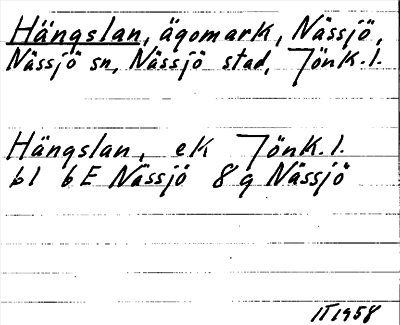 Hängslan, ägomark, Nässjö,
Nässjö sn, Nässjö stad, Jönk.l.
Hängslan, ek Jönk.l.
bl 6E Nässjö 8g Nässjö
IT 1958